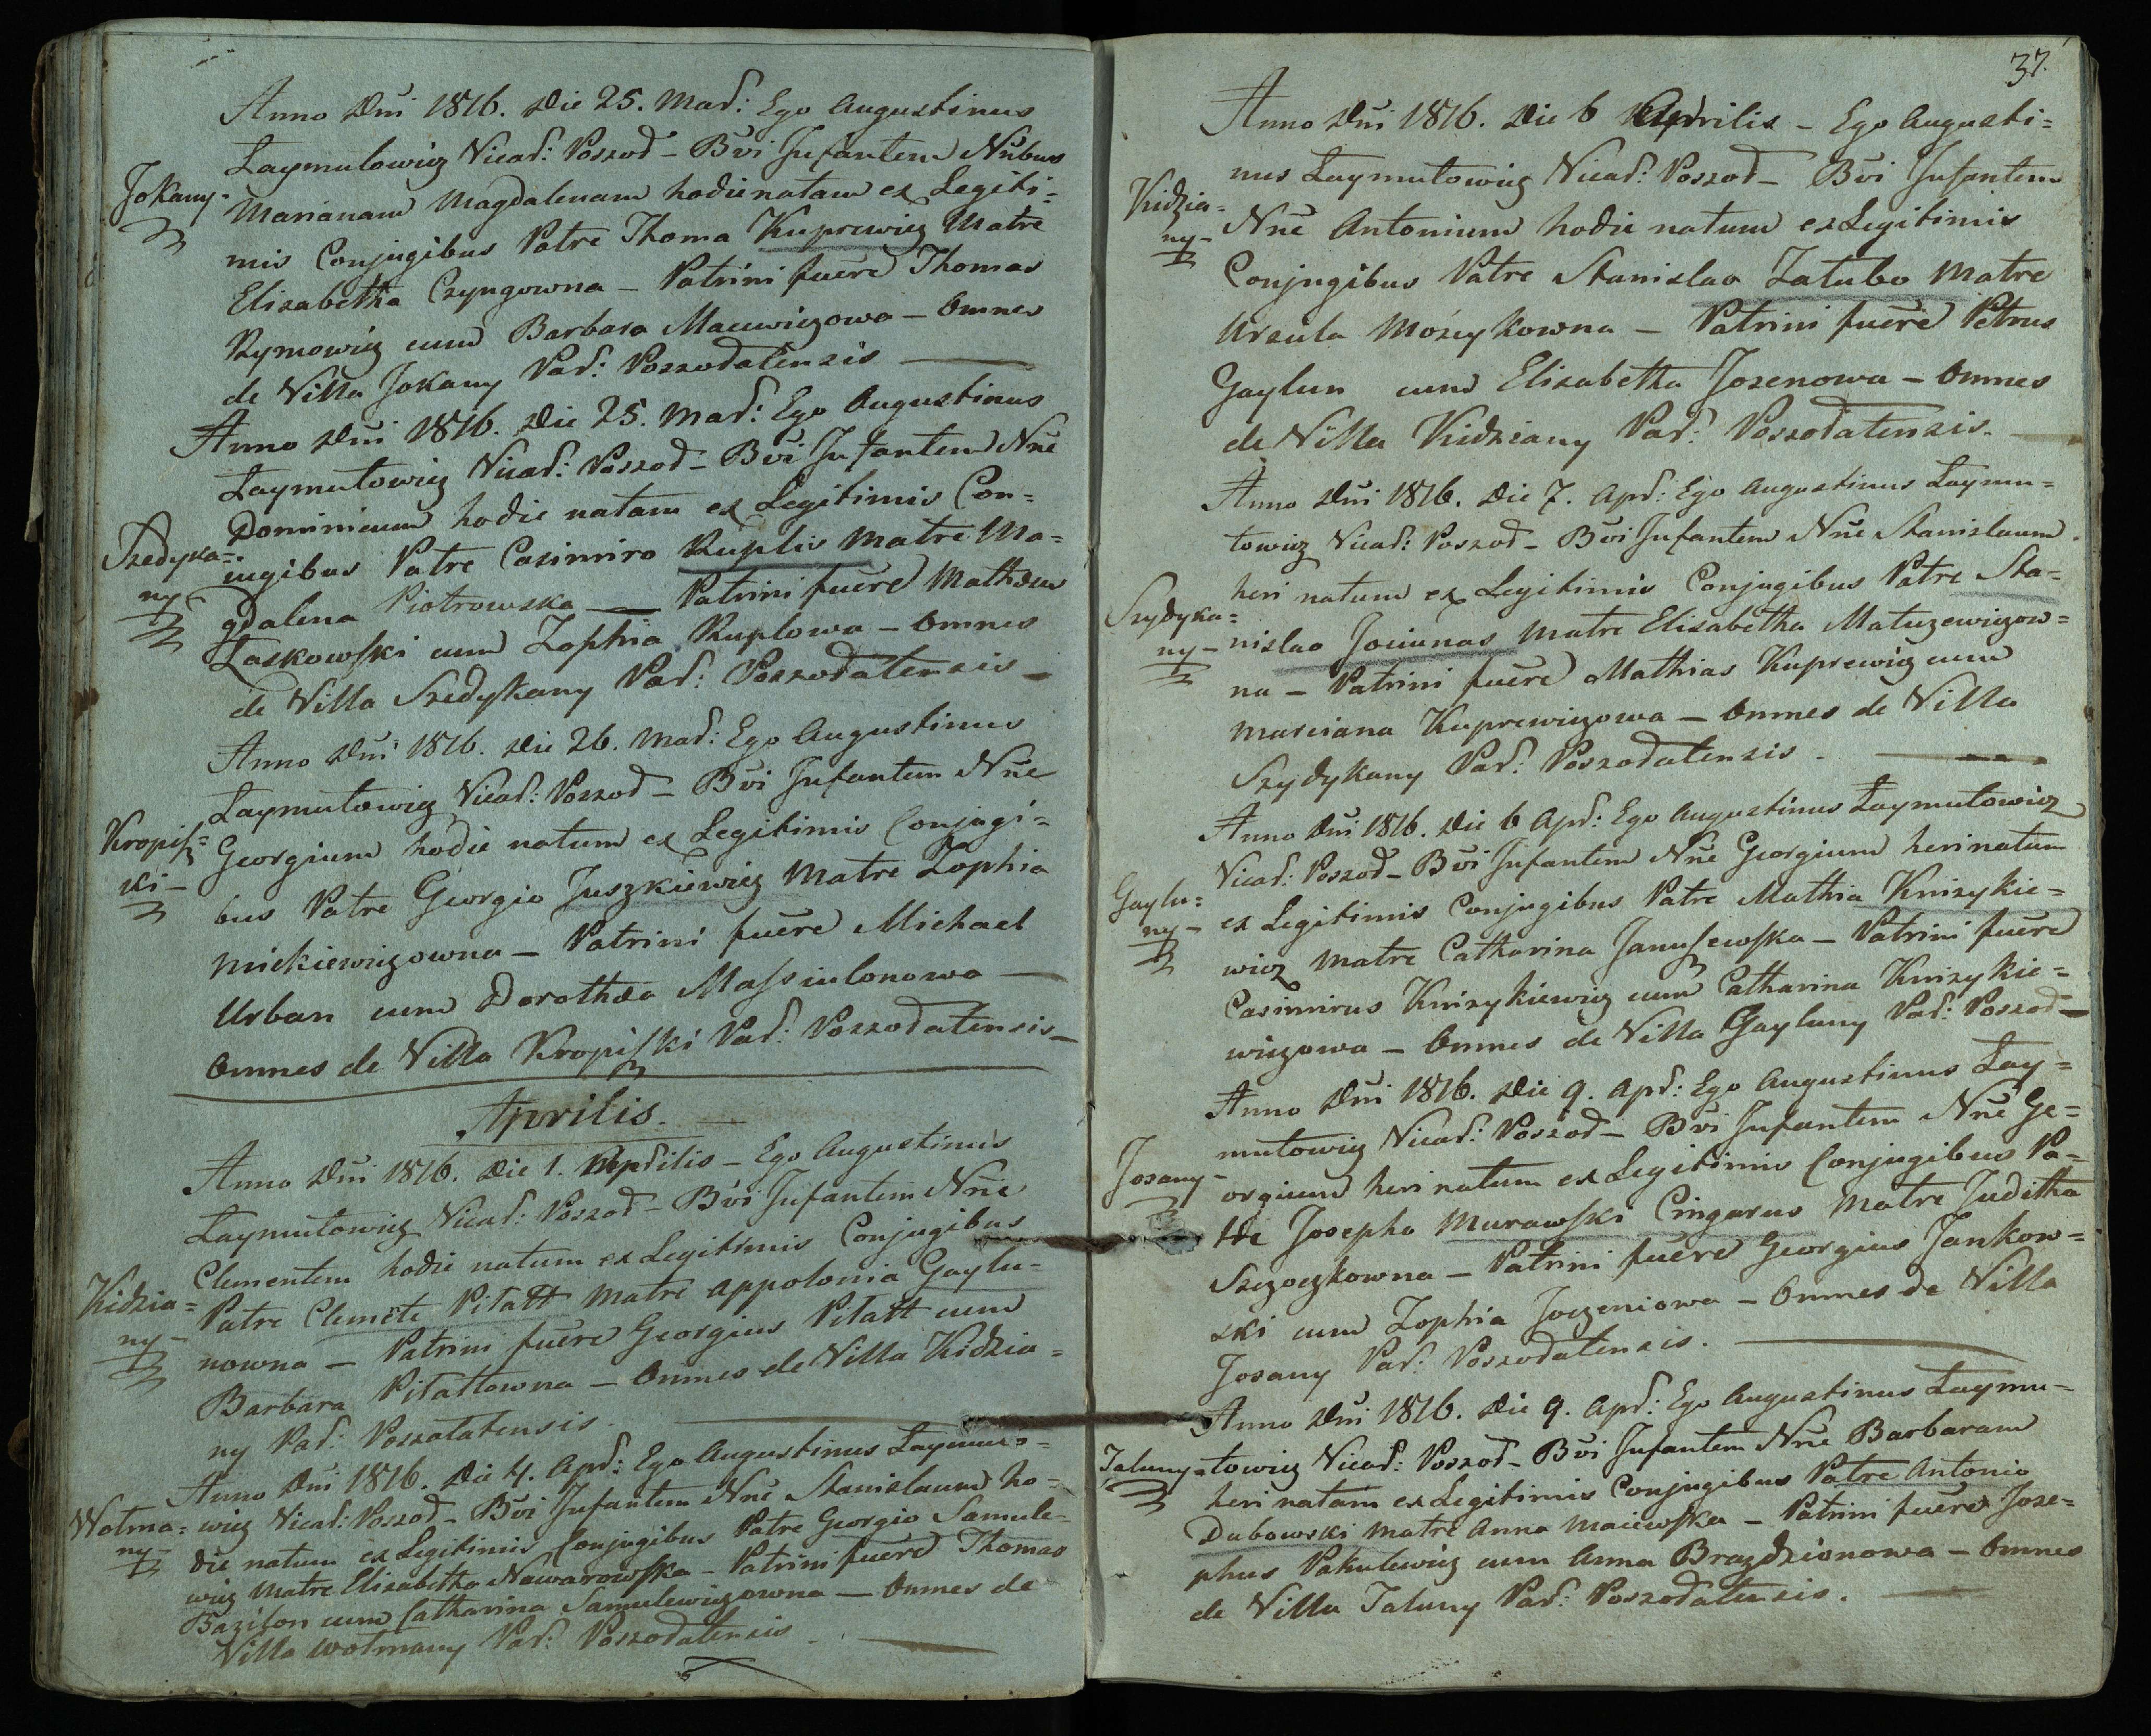 Anno Dni 1816. Die 25. Mar: Ego Augustinus
Jokany-
Laymutowicz Vicar: Poszod - Bvi Infantem Nubus
Marianam Magdalenam hodie natam ex Legiti=
mis Conjugibus Patre Thoma Kuprewicz Matre
Elisabetha Czyngowna - Patrini fuere Thomas
Rymowicz cum Barbara Macewiczowa - Omnes
de Villa Jokany Par: Poszodatensis
Anno Dni 1816. Die 25. Mar: Ego Augustinus
Laymutowicz Vicar: Poszod - Bvi Infantem Nne
Dominicum hodie natam ex Legitimis Con=
Szedyka=
ny
iugibus Patre Casimiro Ruplis Matre Ma=
gdalena Piotrowska - Patrini fuere Mathæus
Laskowski cum Zophia Ruplowa - Omnes
de Villa Szedykany Par: Poszodatensis -
Anno Dni 1816. Die 26. Mar: Ego Augustinus
Laymutowicz Vicar: Poszod - Bvi Infantem Nne
Kropis=
ki -
Georgium hodie natum ex Legitimis Conjugi=
bus Patre Georgio Juszkiewicz Matre Zophia
Mickiewiczowna - Patrini fuere Michael
Urban cum Dorothæa Massiulonowa -
Omnes de Villa Kropiski Par: Poszodatensis -
Aprilis.
Anno Dni 1816. Die 1. Aprilis - Ego Augustinus
Laymutowicz Vicar: Poszod - Bvi Infantem Nne
Clementem hodie natum ex Legitimis Conjugibus
Kidzia=
ny -
Patre Clemete Pitatt Matre Appolonia Gaylu=
nowna - Patrini fuere Georgius Pitatt cum
Barbara Pitattowna - Omnes de Villa Kidzia=
ny Par: Poszatatensis.
Anno Dni 1816. Die 4. Apr: Ego Augustinus Laymuto=
Wotma=
ny -
wicz Vicar: Poszod - Bvi Infantem Nne Stanislaum ho=
die natum ex Legitimis Conjugibus Patre Georgio Samule=
wicz Matre Elisabetha Nawarowska - Patrini fuere Thomas
Bazilon cum Catharina Samulewiczowna - Omnes de
Villa Wotmany Par: Poszodatensis
37.
Anno Dni 1816. Die 6 Aprilis - Ego Augusti=
nus Laymutowicz Vicar: Poszod - Bvi Infantem
Kidzia=
ny -
Nne Antonium hodie natum ex Legitimis
Conjugibus Patre Stanislao Zatubo Matre
Ursula Mozeykowna - Patrini fuere Petrus
Gaylun cum Elisabetha Jozenowa - Omnes
de Villa Kidziany Par: Poszodatensis.
Anno Dni 1816. Die 7. Apr: Ego Augustinus Laymu=
towicz Vicar: Poszod - Bvi Infantem Nne Stanislaum
heri natum ex Legitimis Conjugibus Patre Sta=
Szydyka=
ny -
nislao Jociunas Matre Elisabetha Matuzewiczow=
na - Patrini fuere Mathias Kuprewicz cum
Marciana Kuprewiczowa - Omnes de Villa
Szydykany Par: Poszodatensis.
Anno Dni 1816. Die 6 Apr: Ego Augustinus Laymutowicz
Vicar: Poszod - Bvi Infantem Nne Georgium heri natum
Gaylu=
ny -
ex Legitimis Conjugibus Patre Mathia Knizykie=
wicz Matre Catharina Janusewska - Patrini fuere
Casimirus Knizykiewicz cum Catharina Knizykie=
wiczowa - Omnes de Villa Gayluny Par: Poszod -
Anno Dni 1816. Die 9. Apr: Ego Augustinus Lay=
mutowicz Vicar: Poszod - Bvi Infantem Nne Ge=
Jozany -
orgium heri natum ex Legitimis Conjugibus Pa=
tre Josepho Murawski Cingarus Matre Juditha
Szczoczkowna - Patrini fuere Georgius Jankow=
ski cum Zophia Joczeniowa - Omnes de Villa
Jozany Par: Poszodatensis.
Anno Dni 1816. Die 9. Apr: Ego Augustinus Laymu=
Taluny -
towicz Vicar: Poszod - Bvi Infantem Nne Barbaram
heri natam ex Legitimis Conjugibus Patre Antonio
Dubowski Matre Anna Maiewska - Patrini fuere Jose=
phus Pakulewicz cum Anna Brazdzionowa - Omnes
de Villa Taluny Par: Poszodatensis.